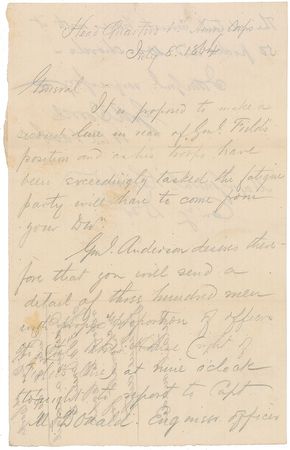 Head Quarters Army Corps
July 8. 1864
General
It is proposed to make a
second line in rear of Genl. Field's
position and as his troops have
been exceedingly tasked the fatigue
party will have to come from
your Divn
Genl. Anderson desires there-
fore that you will send a
detail of three hundred men
with proper proportion of officers
right of
at nine o'clock
to night to report to Capt
McDonald. Engineer officer